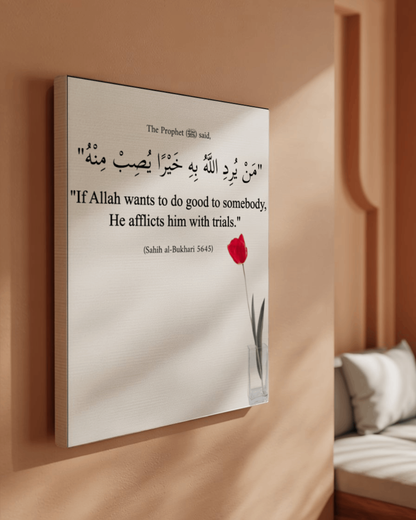 The Prophet (ﷺ) said,
"مَنْ يُرِدِ اللَّهُ بِهِ خَيْرًا يُصِبْ مِنْهُ"
"If Allah wants to do good to somebody,
He afflicts him with trials."
(Sahih al-Bukhari 5645)